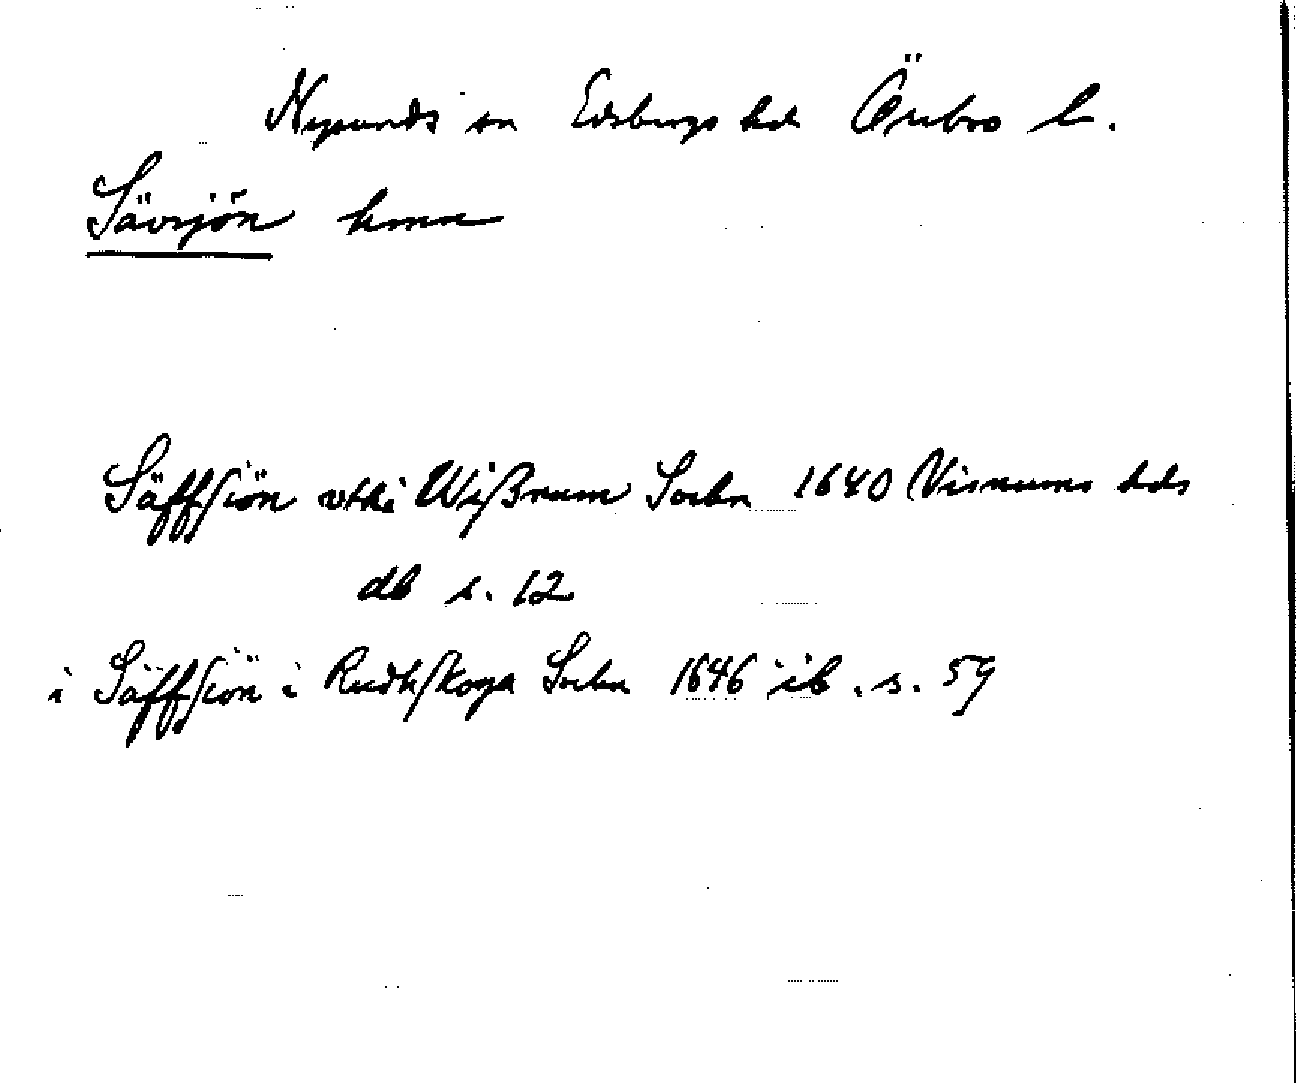 Nysunds sn Edsbergs hd Örebro l.
Sävsjön hmn
Säffsiön vthi Wißnum Sockn 1640 Visnums hds
db s. 12
i Säffsiön i Rudhskoga Sockn 1646 ib. s. 59